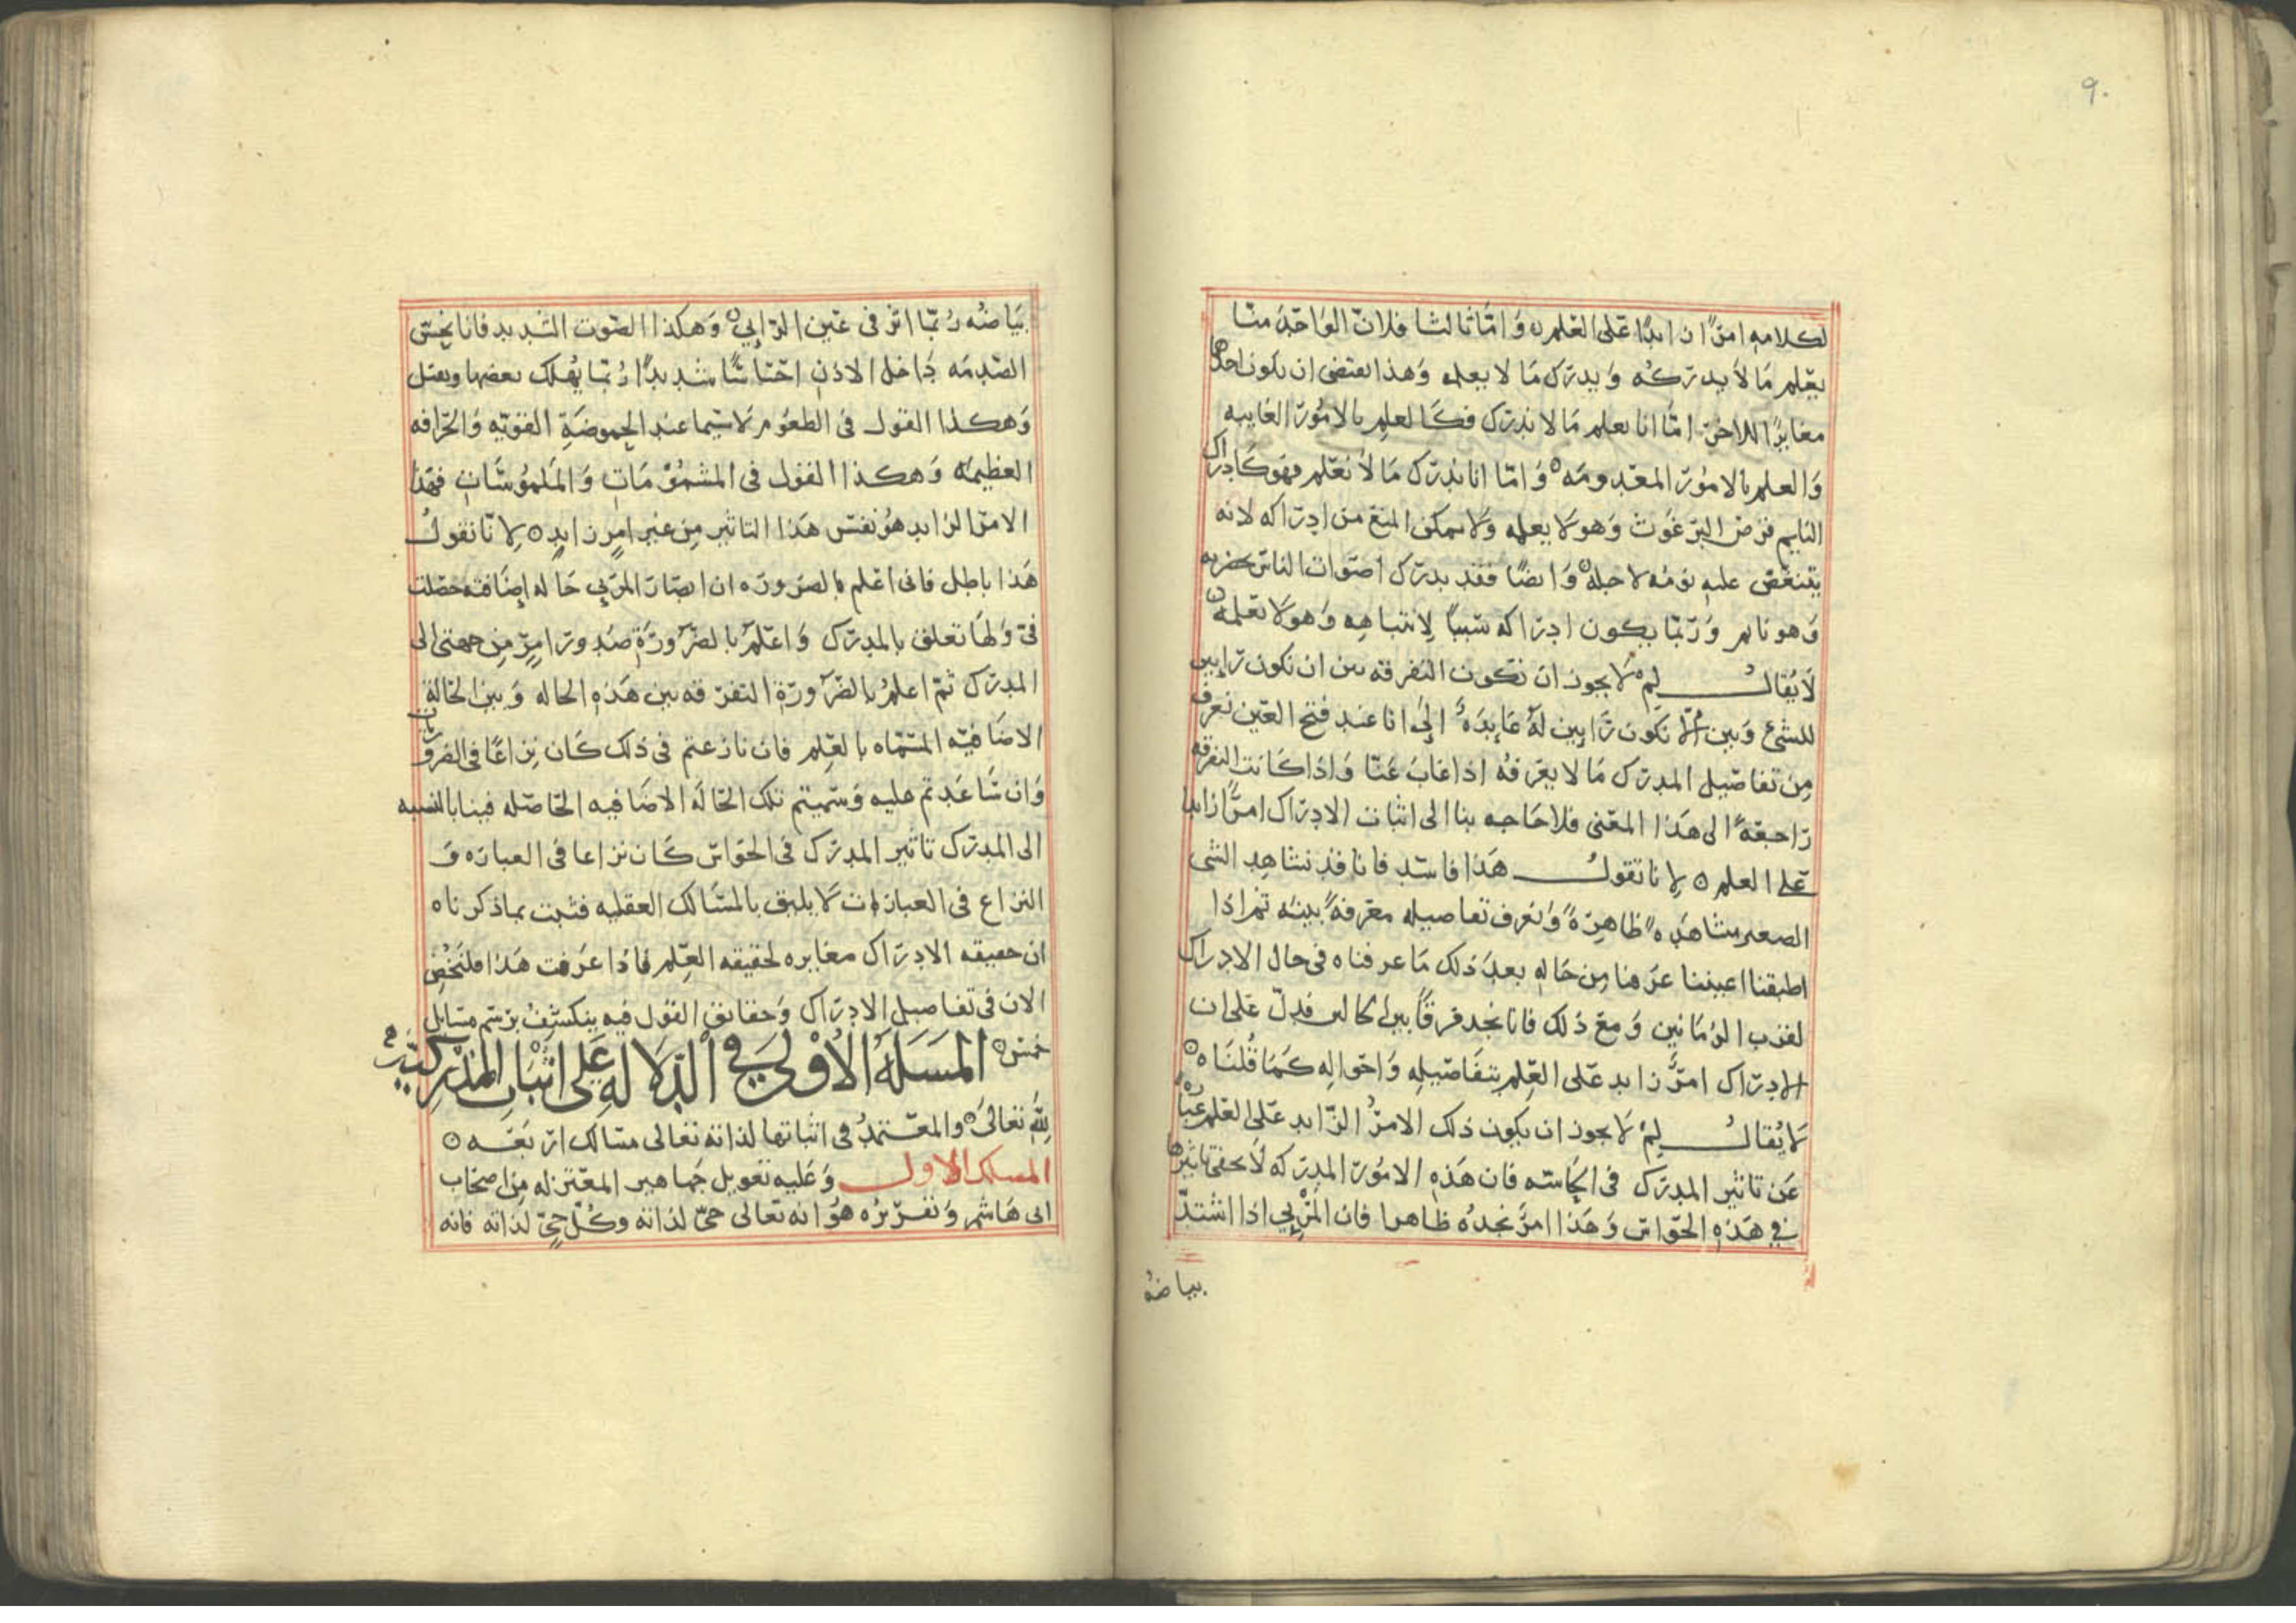 ٩٠
لكلامه امرًا زايدًا على العلم ٥ وَامَّا ثالثا فلانّ الوَاحِدَ منّا
يعْلم مَا لاَ يدركُه وَيدرَك مَا لا يعلمه وَهذا يقتضى ان يكون احدهما
مغايرًا للاخر امَّا انا نعلم مَا لا ندرَك فكَالعلم بالامُور الغايبه
وَالعلم بالامُور المعدومَه ٥ وَامّا انا ندرَك مَا لاَ نعْلم فهو كَادراك
النايم قرص البرغوث وَهو لا يعلمه وَلا يمكن المنع من ادراكه لانه
يتنغّص عليه نومُه لاجله ٥ وَايضًا فقد يدرَك اصوَات الناس بحضرته
وَهو نايم وَربّمَا يكون ادراكه سَببًا لانتباهِه وَهو لا يَعلمه ٥
لاَ يُقالُ لِم لا يجوز ان تكون التفرقه بين ان نكون رَايين
للشئ وَبين الاّ نكون رَايين لهُ عَايدَهً الى انا عند فتح العَين نعرف
مِن تفاصيل المدرَك مَا لا يعرفهُ اذا غابَ عَنّا وَاذا كَانت التفرقه
رَاجعَةً الى هَذا المعْنى فلا حَاجه بنا الى اثبات الادرَاك امرًا زايدا
عَلى العلم ٥ لانا نقولُ هَذا فاسد فانا قد نشاهِد الشى
الصغير مشاهَده ظاهِرَةً وَنعرف تفاصيله معرفةً بينه ثم اذا
اطبقنا اعيننا عرَفنا مِن حَاله بعدَ ذلك مَا عرفناه فى حال الادراك
لقرب الزمَانين وَمع ذلك فانا نجد فرقًا بين الحالين فدلّ عَلى ان
الادراك امرٌ زايد عَلى العِلم بتفَاصيلِه وَاحوَالِه كَمَا قُلنَاه ٥
لاَ يُقالُ لِمْ لاَ يجوز ان يكون ذلك الامرُ الزّايد عَلى العلم عبَارةً
عَن تاثير المدرَك فى الحاسّه فان هَذهِ الامُور المدرَكه لاَ يخفى تاثيرها
فى هَذِهِ الحوَاس وَهَذا امرٌ نجدُه ظاهرا فان المَرْئى اذا اشتدّ
بياضهُ
بيَاضُه رُبّمَا اثر فى عَين الرّائى ٥ وَهكذا الصّوت الشديد فانا نحِسّ
الصّدمَه دَاخل الاذن احسَاسًا شديدًا رُبّمَا يُهلك بعضها ويقتل
وَهكذا القول فى الطعُوم لاَ سيّما عند الحموضَةِ القويّه وَالحَرافه
العظيمَه وَهكذا القول فى المشمُوْمَاتِ وَالمَلمُوسَاتِ فهَذا
الامر الزايد هوُ نفس هَذا التاثير مِن غير امرٍ زايدٍ ٥ لاِ نّا نقولُ
هَذا باطل فانى اعْلم بالضروره ان ابصَار المرَئى حَاله اِضافيه حصَلت
فىّ وَلهَا تعلق بالمدرَك وَاعلمُ بالضّرورَةِ صدُور امرٍ مِن جهتى الى
المدرَك ثمّ اعلمُ بالضّرورَةِ التفرقه بين هَذهِ الحاله وَبين الحَالة
الاضَافيّه المسمّاه بالعِلم فان نازعتم فى ذلك كَان نِزاعًا فى الضروريات
وَان سَاعَدتم عليه وَسَميتم تلك الحَالَه الاضَافيه الحَاصله فينا بالنسبه
الى المدرَك تاثير المدرَك فى الحوَاس كَان نزاعا فى العبارَه وَ
النزاع فى العبارَات لاَ يليق بالمسَالك العقليه فثبت بما ذكرناه
ان حقيقه الادرَاك مغايره لحقيقه العِلم فاذا عَرفت هَذا فلنَخُض
الان فى تفاصيل الادرَاك وَحقايق القول فيه ينكسْفُ برَسم مسَايل
خمس ٥ المَسَلهُ الاُوْلىَ فِي الدّلالهِ عَلى اثبَات المُدْرِكيّه
للهِ تعَالى ٥ والمعْتمدُ فى اثباتها لذاته تعَالى مسَالك اربعَه ٥
المسلك الاول وَعَليه تعويل جمَاهير المعْتزله مِن اصحَاب
ابى هَاشم وَتقريرُه هوُ انه تعَالى حَىّ لذاته وكُلّ حَىٍّ لذَاته فانه